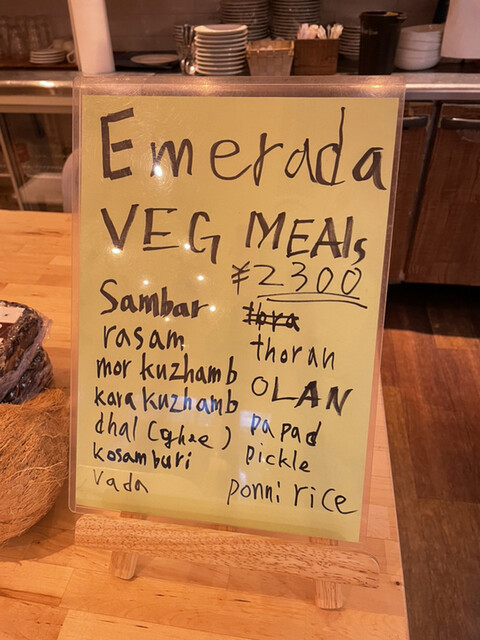 Emerada
VEG MEAls
¥2300
Sambar
rasam
mor kuzhamb
kara kuzhamb
dhal (ghee)
kosamburi
vada
thoran
OLAN
papad
pickle
ponni rice